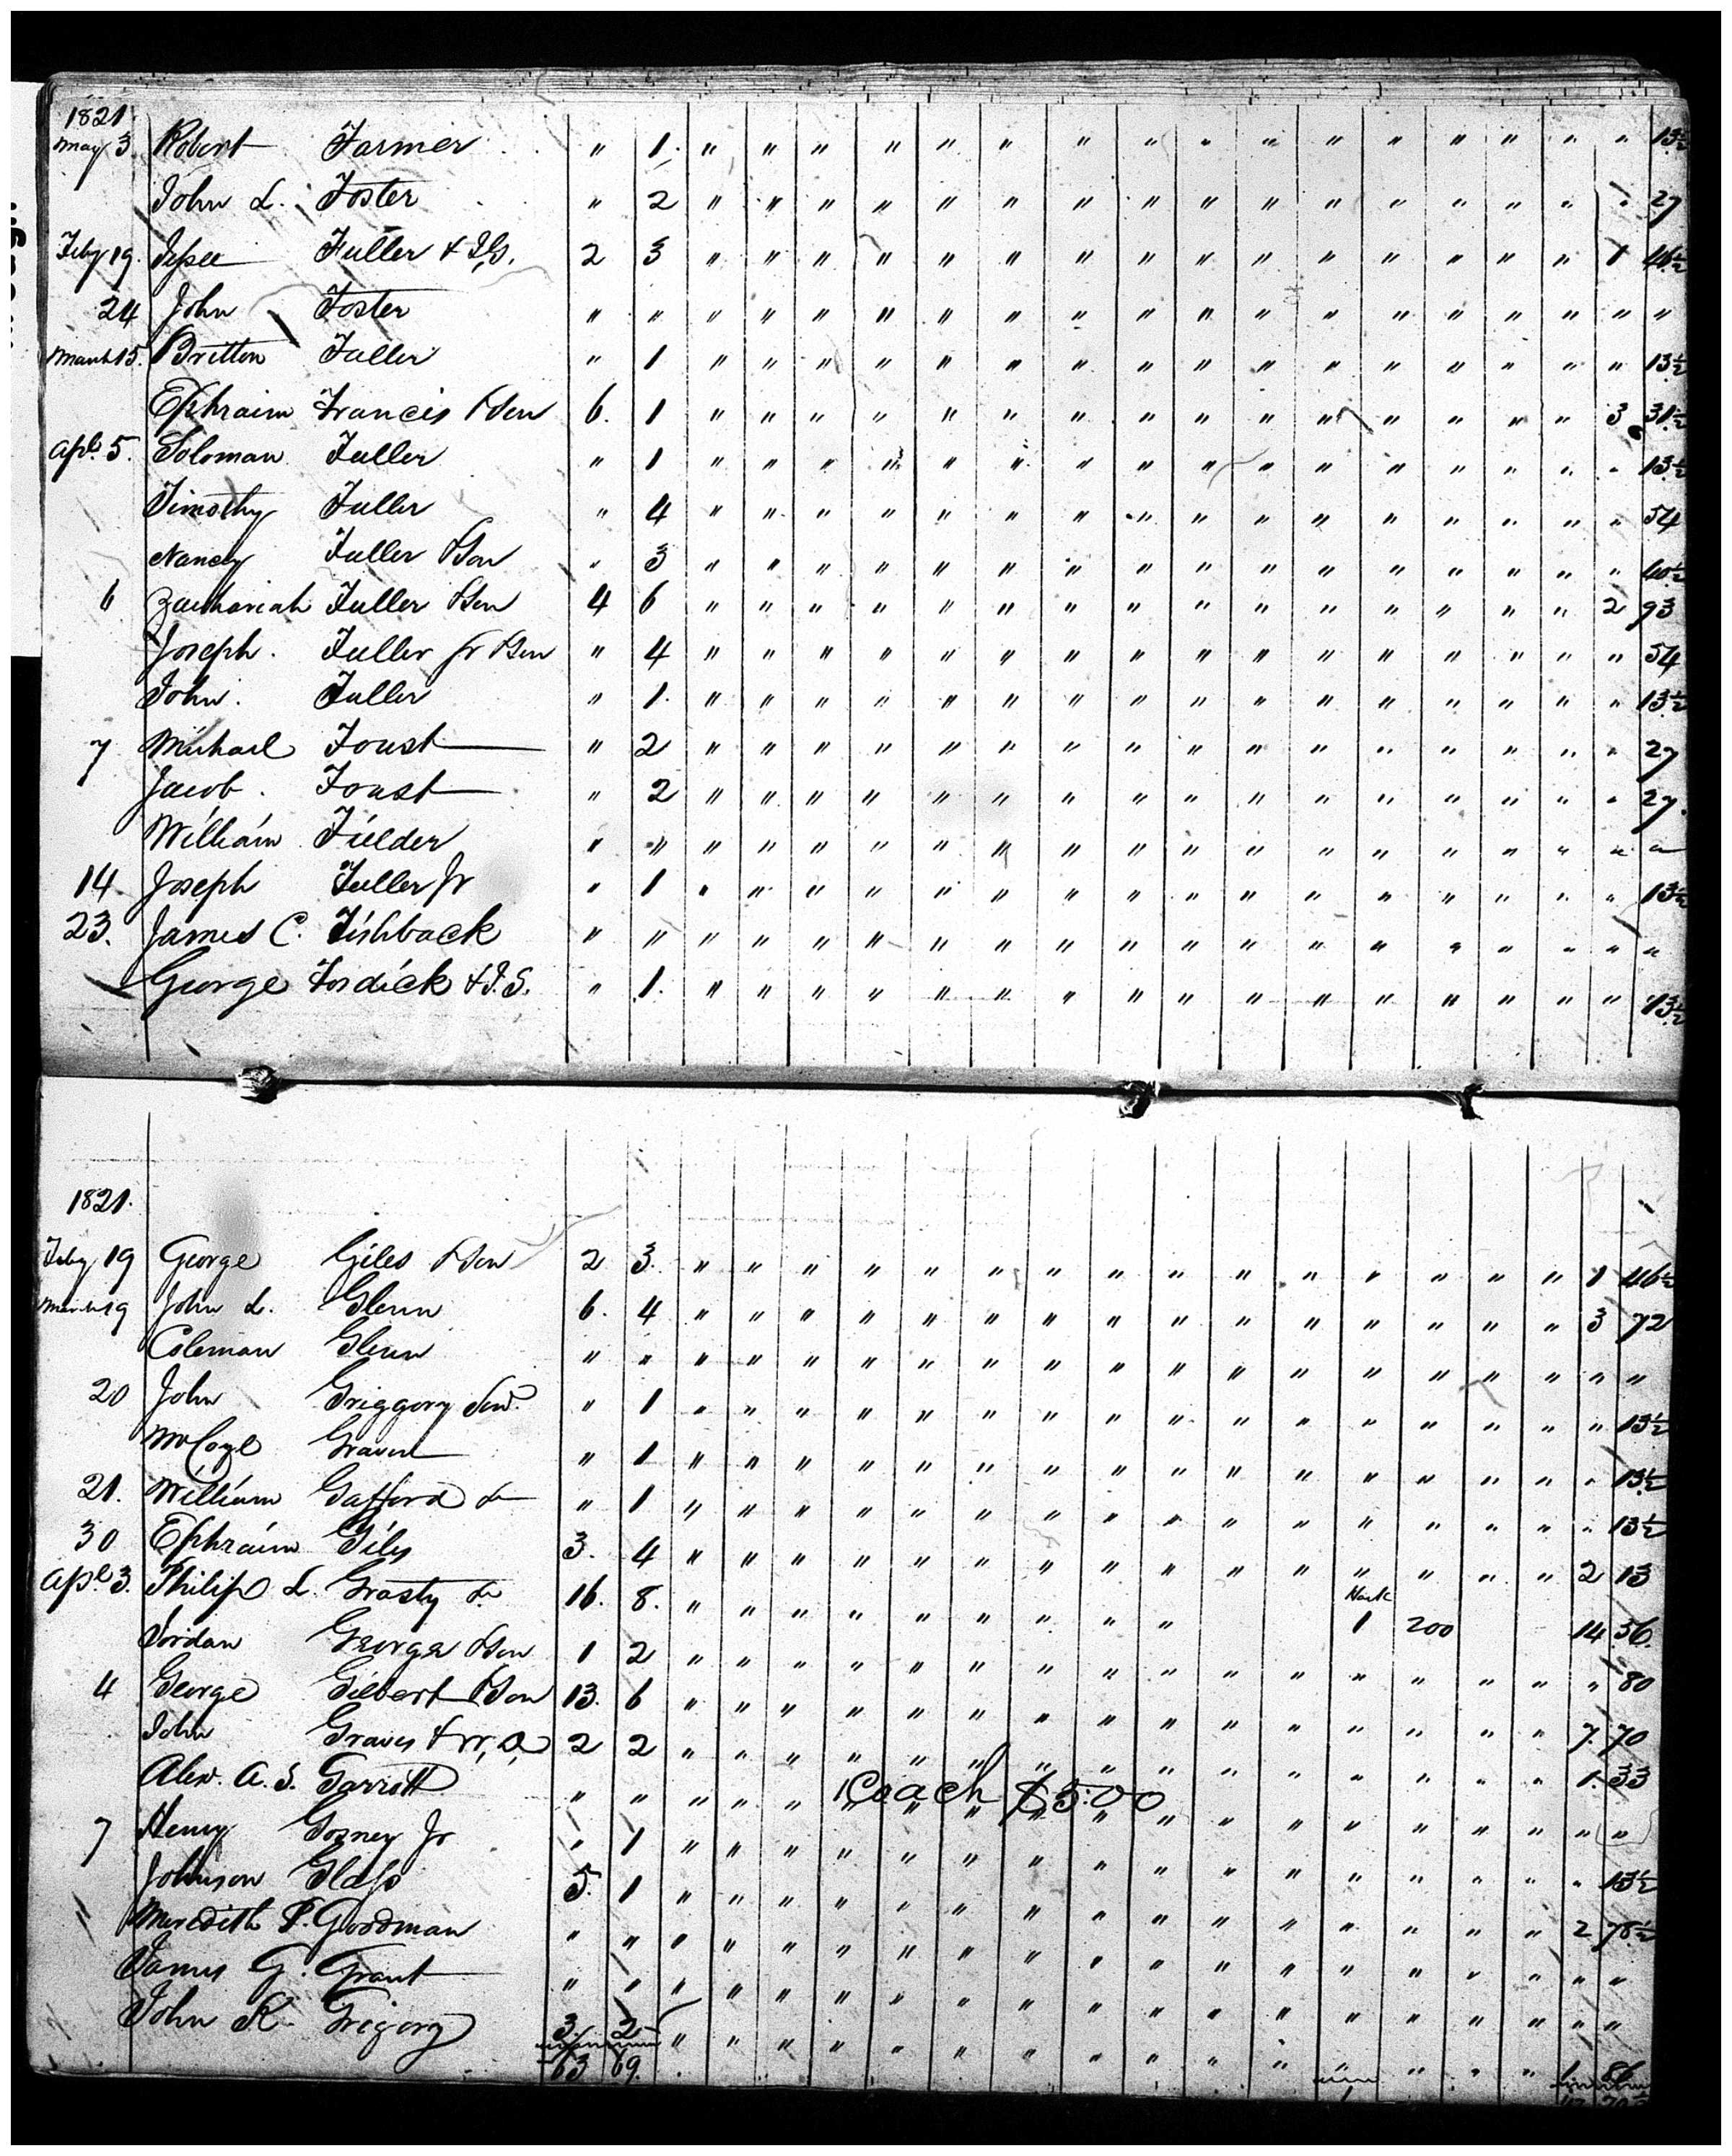 1821.
May 3. Robert Farmer " 1. " " " " " " " " " " " " " " " " 13½
John L. Foster " 2 " " " " " " " " " " " " " " " " 27
Feby 19. Jesse Fuller & J.G. 2 3 " " " " " " " " " " " " " " " 1 46½
24 John Foster " " " " " " " " " " " " " " " " " " "
March 15. Britton Fuller " 1 " " " " " " " " " " " " " " " " 13½
Ephraim Francis & Son 6. 1 " " " " " " " " " " " " " " " 3 31½
Apl. 5. Soloman Fuller " 1 " " " " " " " " " " " " " " " " 13½
Timothy Fuller " 4 " " " " " " " " " " " " " " " " 54
Nancy Fuller & Son " 3 " " " " " " " " " " " " " " " " 40½
6 Zachariah Fuller & Son 4 6 " " " " " " " " " " " " " " " 2 93
Joseph. Fuller Jr & Son " 4 " " " " " " " " " " " " " " " " 54
John. Fuller " 1. " " " " " " " " " " " " " " " " 13½
7 Michael Foust " 2 " " " " " " " " " " " " " " " " 27
Jacob. Foust " 2 " " " " " " " " " " " " " " " " 27.
William Fielder " " " " " " " " " " " " " " " " " " "
14. Joseph Fuller Jr " 1 " " " " " " " " " " " " " " " " 13½
23. James C. Fishback " " " " " " " " " " " " " " " " " " "
George Fosdick & J.S. " 1. " " " " " " " " " " " " " " " " 13½
1821.
Feby 19 George Giles & Son 2 3. " " " " " " " " " " " " " " " 1 46½
March 19 John L. Glenn 6. 4 " " " " " " " " " " " " " " " 3 72
Coleman Glenn " " " " " " " " " " " " " " " " " " "
20 John Griggory Senr. " 1 " " " " " " " " " " " " " " " " 13½
McCoye Graves " 1 " " " " " " " " " " " " " " " " 13½
21. William Gafford " 1 " " " " " " " " " " " " " " " " 13½
30 Ephraim Giles 3. 4 " " " " " " " " " " " " " " " 2 13
Apl. 3. Philip L. Grasty 16. 8. " " " " " " " " " Hack 1 200 14 56
Jordan George & Son 1 2 " " " " " " " " " " " " " " " " 80
4 George Gilbert & Son 13. 6 " " " " " " " " " " " " " " " 7. 70
John Graves 2 2 " " " " " " " " " " " " " " " 1. 33
Alex. A. S. Garrett " " " " " " " " " " " " " " " " " " "
1 Coach $500
7 Henry Gosney Jr " 1 " " " " " " " " " " " " " " " " 13½
Johnson Glass 5. 1 " " " " " " " " " " " " " " " 2 78½
Meredith P. Goodman " " " " " " " " " " " " " " " " " " "
James G. Grant " " " " " " " " " " " " " " " " " " "
John K. Grigory 3. 2 " " " " " " " " " " " " " " " 1 86
63 69.